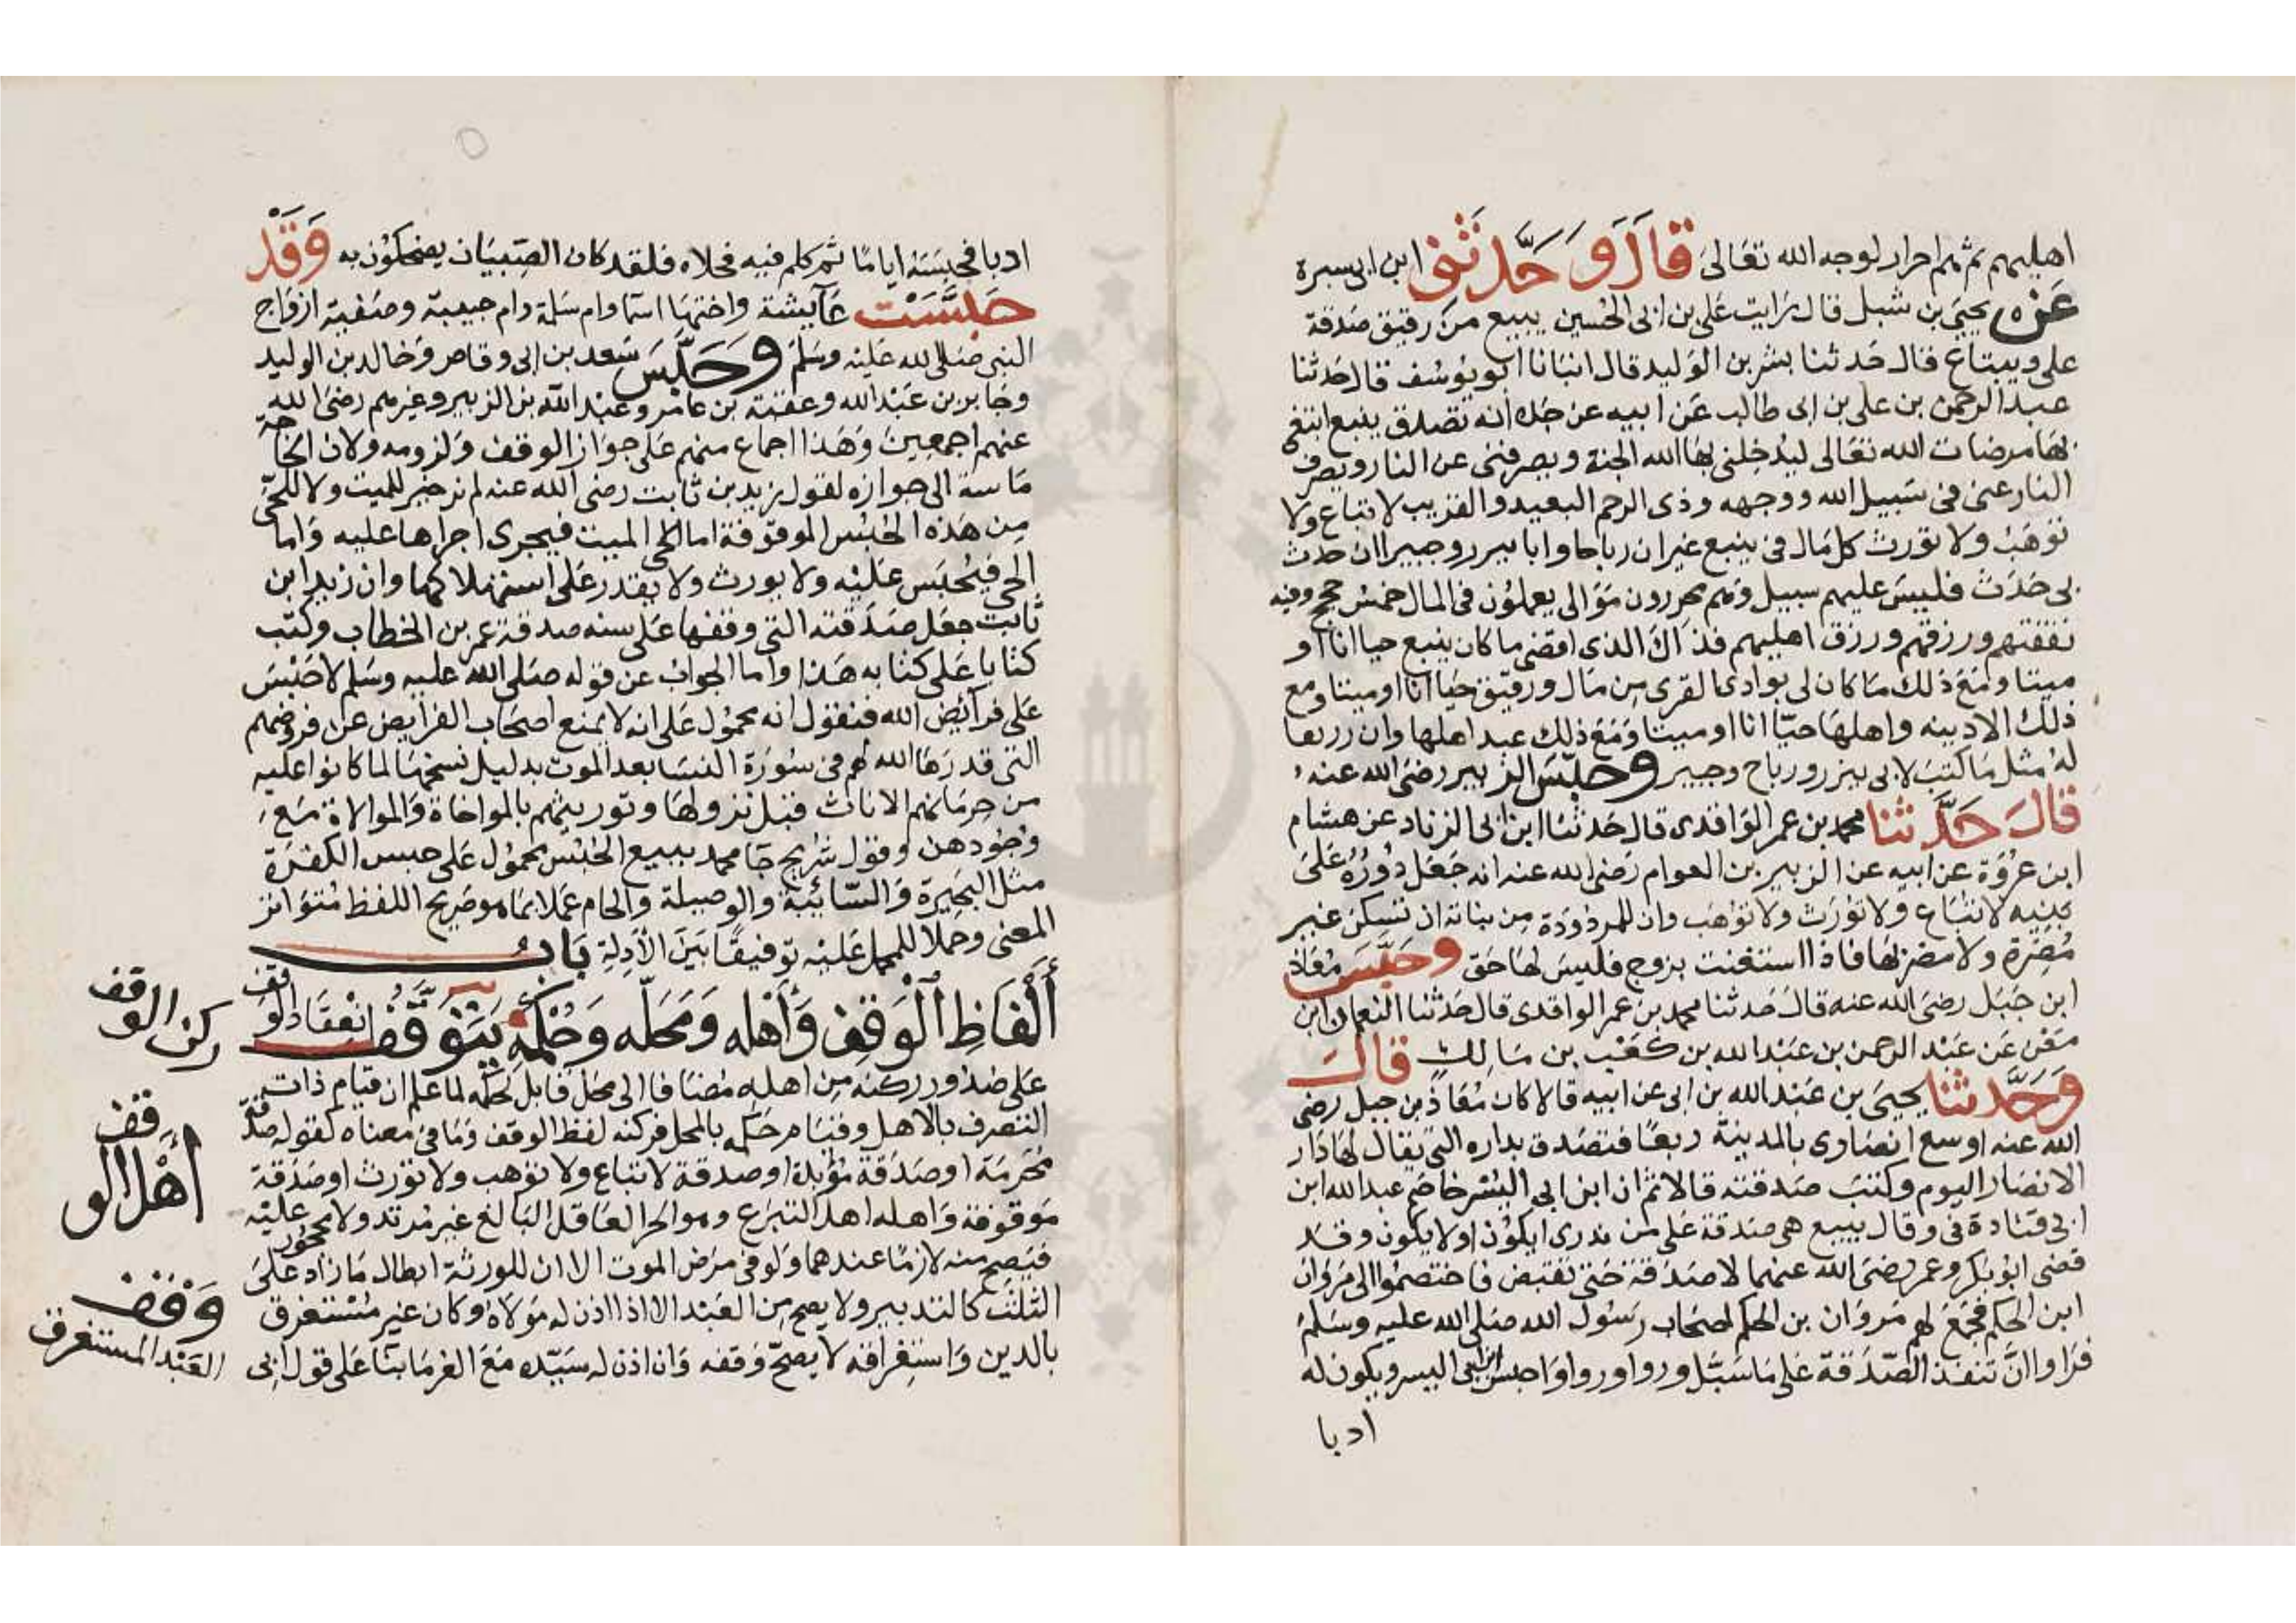 اهليهم ثم هم احرار لوجه الله تعالى قال وحدثني ابن ابي سبرة
عن يحيى بن شبل قال رايت على بن ابى الحسين يبيع من رقيق صدقة
على ويبتاع قال حدثنا بشر بن الوليد قال انبانا ابو يوسف قال حدثنا
عبد الرحمن بن على بن ابى طالب عن ابيه عن جده انه تصدق بينبع ابتغى
بها مرضات الله تعالى ليدخلنى بها الله الجنة ويصرفنى عن النار ويصرف
النار عنى فى سبيل الله ووجهه وذى الرحم البعيد والقريب لا تباع ولا
توهب ولا تورث كل مال فى ينبع غير ان رباحا وابا بيرر وجبيرا ان حدث
بى حدث فليس عليهم سبيل وهم محررون موالى يعملون فى المال خمس حجج وفيه
نفقتهم ورزقهم ورزق اهليهم فذاك الذى اقضى ما كان بينبع حيا انا او
ميتا ومع ذلك ما كان لى بوادى القرى من مال ورقيق حيا انا او ميتا ومع
ذلك الادينه واهلها حيا انا او ميتا ومع ذلك عبد اهلها وان زريعا
له مثل ما كتب لابى بيزر ورباح وجبير وحبس الزبير رضى الله عنه
قال حدثنا محمد بن عمر الواقدى قال حدثنا ابن ابى الزناد عن هشام
ابن عروة عن ابيه عن الزبير بن العوام رضى الله عنه انه جعل دوره على
بنيه لا تباع ولا تورث ولا توهب وان للمردودة من بناته ان تسكن غير
مضرة ولا مضر بها فاذا استغنت بزوج فليس لها حق وحبس معاذ
ابن جبل رضى الله عنه قال حدثنا محمد بن عمر الواقدى قال حدثنا النعمان ابن
معن عن عبد الرحمن بن عبد الله بن كعب بن مالك قال
وحدثنا يحيى بن عبد الله بن ابى عن ابيه قالا كان معاذ بن جبل رضى
الله عنه اوسع انصارى بالمدينة ربعا فتصدق بداره التى يقال لها دار
الانصار اليوم وكتب صدقته قالا ثم ان ابن ابى اليسر خاصم عبد الله ابن
ابى قتادة فى وقال يبيع هى صدقة على من ندرى ايكون او لا يكون وقد
قضى ابو بكر وعمر رضى الله عنهما لا صدقة حتى تقبض فاختصموا الى مروان
ابن الحكم فجمع لهم مروان بن الحكم اصحاب رسول الله صلى الله عليه وسلم
فراوا ان تنفذ الصدقة على ما سبل وراوا حبس ابن ابى اليسر ويكون له
ادبا
ادبا فحبسه اياما ثم كلم فيه فخلاه فلقد كان الصبيان يضحكون به وقد
حبست عايشة واختها اسما وام سلمة وام حبيبة وصفية ازواج
النبى صلى الله عليه وسلم وحبس سعد بن ابى وقاص وخالد بن الوليد
وجابر بن عبد الله وعقبة بن عامر وعبد الله بن الزبير وغيرهم رضى الله
عنهم اجمعين وهذا اجماع منهم على جواز الوقف ولزومه ولان الحاجة
ماسة الى جوازه لقول زيد بن ثابت رضى الله عنه لم نر خير للميت ولا للحى
من هذه الحبس الموقوفة اما الميت فيجرى اجرها عليه واما
الحى فيحبس عليه ولا يورث ولا يقدر على استهلاكها وان زيد ابن
ثابت جعل صدقته التى وقفها على سنه صدقة عمر بن الخطاب وكتب
كتابا على كتابه هذا واما الجواب عن قوله صلى الله عليه وسلم لا حبس
على فرائض الله فنقول انه محمول على انه لا يمنع اصحاب الفرايض عن فروضهم
التى قدرها الله لهم فى سورة النسا بعد الموت بدليل نسخها لما كانوا عليه
من حرمانهم الاناث قبل نزولها وتوريثهم بالمواخاة والموالاة مع
وجودهن وقول شريح جا محمد ببيع الحبس محمول على حبس الكفرة
مثل البحيرة والسائبة والوصيلة والحام عملا بما هو صريح اللفظ متواتر
المعنى وحملا للمحمل عليه توفيقا بين الادلة باب
ألفاظ الوقف وأهله ومحله وحكمه يتوقف انعقاد الوقف
على صدور ركنه من اهله مضافا الى محل قابل لحكمه لما علم ان قيام ذات
التصرف بالاهل وقيام حكمه بالمحل فركنه لفظ الوقف وما فى معناه كقوله صدقة
محرمة او صدقة مؤبدة او صدقة لا تباع ولا توهب ولا تورث او صدقة
موقوفة واهله اهل التبرع وهو الحر العاقل البالغ غير مرتد ولا محجور عليه
فيصح منه لازما عندهما ولو فى مرض الموت الا ان للورثة ابطال ما زاد على
الثلث كالتدبير ولا يصح من العبد الا اذا اذن له مولاه وكان غير مستغرق
بالدين واستغراقه لا يصح وقفه وان اذن له سيده مع الغرما بنا على قول ابى
ركن الوقف
أهل الوقف
وقف
العبد المستغرق